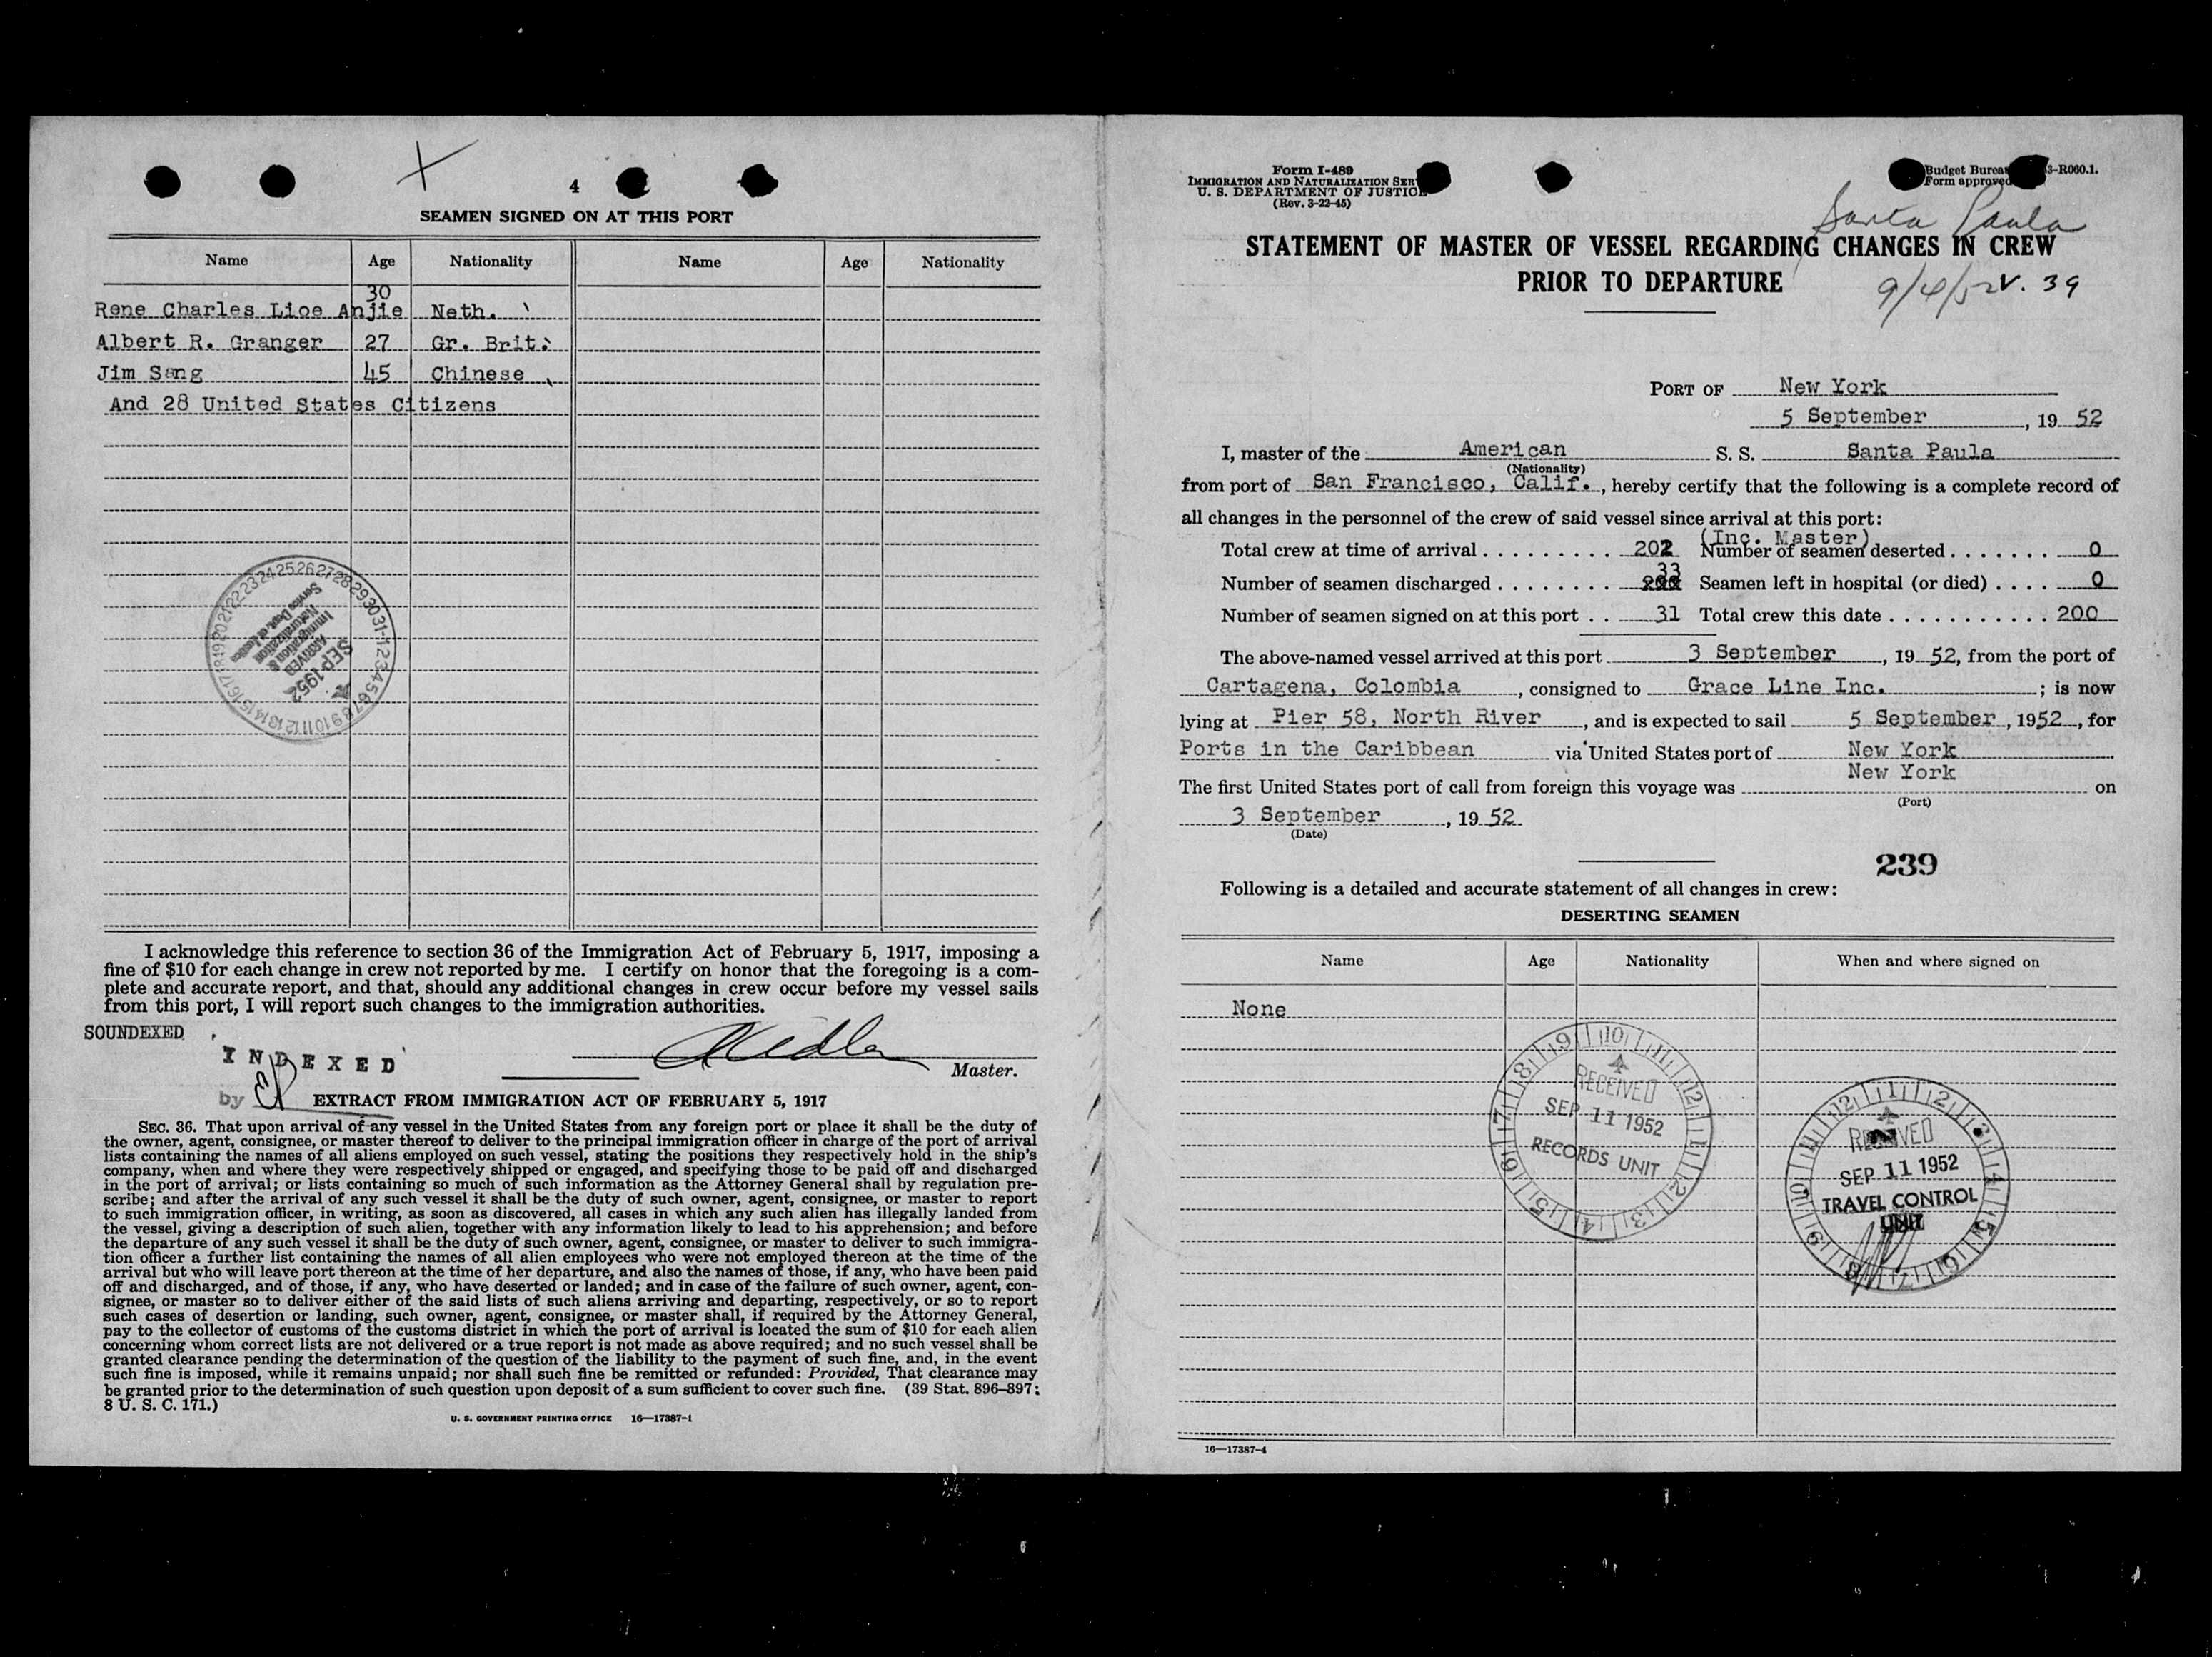 4
SEAMEN SIGNED ON AT THIS PORT
Name Age Nationality Name Age Nationality
30
Rene Charles Lioe Anjie Neth.
Albert R. Granger 27 Gr. Brit.
Jim Sang 45 Chinese
And 28 United States Citizens
ARRIVED
SEP 1952
Immigration &
Naturalization
Service Dept. of Justice
I acknowledge this reference to section 36 of the Immigration Act of February 5, 1917, imposing a
fine of $10 for each change in crew not reported by me. I certify on honor that the foregoing is a com-
plete and accurate report, and that, should any additional changes in crew occur before my vessel sails
from this port, I will report such changes to the immigration authorities.
SOUNDEXED
INDEXED
by
Master.
EXTRACT FROM IMMIGRATION ACT OF FEBRUARY 5, 1917
SEC. 36. That upon arrival of any vessel in the United States from any foreign port or place it shall be the duty of
the owner, agent, consignee, or master thereof to deliver to the principal immigration officer in charge of the port of arrival
lists containing the names of all aliens employed on such vessel, stating the positions they respectively hold in the ship's
company, when and where they were respectively shipped or engaged, and specifying those to be paid off and discharged
in the port of arrival; or lists containing so much of such information as the Attorney General shall by regulation pre-
scribe; and after the arrival of any such vessel it shall be the duty of such owner, agent, consignee, or master to report
to such immigration officer, in writing, as soon as discovered, all cases in which any such alien has illegally landed from
the vessel, giving a description of such alien, together with any information likely to lead to his apprehension; and before
the departure of any such vessel it shall be the duty of such owner, agent, consignee, or master to deliver to such immigra-
tion officer a further list containing the names of all alien employees who were not employed thereon at the time of the
arrival but who will leave port thereon at the time of her departure, and also the names of those, if any, who have been paid
off and discharged, and of those, if any, who have deserted or landed; and in case of the failure of such owner, agent, con-
signee, or master so to deliver either of the said lists of such aliens arriving and departing, respectively, or so to report
such cases of desertion or landing, such owner, agent, consignee, or master shall, if required by the Attorney General,
pay to the collector of customs of the customs district in which the port of arrival is located the sum of $10 for each alien
concerning whom correct lists are not delivered or a true report is not made as above required; and no such vessel shall be
granted clearance pending the determination of the question of the liability to the payment of such fine, and, in the event
such fine is imposed, while it remains unpaid; nor shall such fine be remitted or refunded: Provided, That clearance may
be granted prior to the determination of such question upon deposit of a sum sufficient to cover such fine. (39 Stat. 896–897;
8 U. S. C. 171.)
U. S. GOVERNMENT PRINTING OFFICE 16—17387-1
Form I-489
IMMIGRATION AND NATURALIZATION SER
U. S. DEPARTMENT OF JUSTICE
(Rev. 3-22-45)
Budget Bureau 3-R060.1.
Form approved
Santa Paula
STATEMENT OF MASTER OF VESSEL REGARDING CHANGES IN CREW
PRIOR TO DEPARTURE
9/4/52 V. 39
PORT OF New York
5 September, 19 52
I, master of the American S. S. Santa Paula
(Nationality)
from port of San Francisco, Calif., hereby certify that the following is a complete record of
all changes in the personnel of the crew of said vessel since arrival at this port:
(Inc. Master)
Total crew at time of arrival . . . . . . . . . 202 Number of seamen deserted . . . . . . . 0
Number of seamen discharged . . . . . . . . 33 Seamen left in hospital (or died) . . . . 0
Number of seamen signed on at this port . . 31 Total crew this date . . . . . . . . . . . 200
The above-named vessel arrived at this port 3 September, 19 52, from the port of
Cartagena, Colombia, consigned to Grace Line Inc.; is now
lying at Pier 58, North River, and is expected to sail 5 September, 1952, for
Ports in the Caribbean via United States port of New York
New York
The first United States port of call from foreign this voyage was on
(Port)
3 September, 19 52
(Date)
239
Following is a detailed and accurate statement of all changes in crew:
DESERTING SEAMEN
Name Age Nationality When and where signed on
None
RECEIVED
SEP 11 1952
RECORDS UNIT
RECEIVED
SEP 11 1952
TRAVEL CONTROL
UNIT
16—17387-4